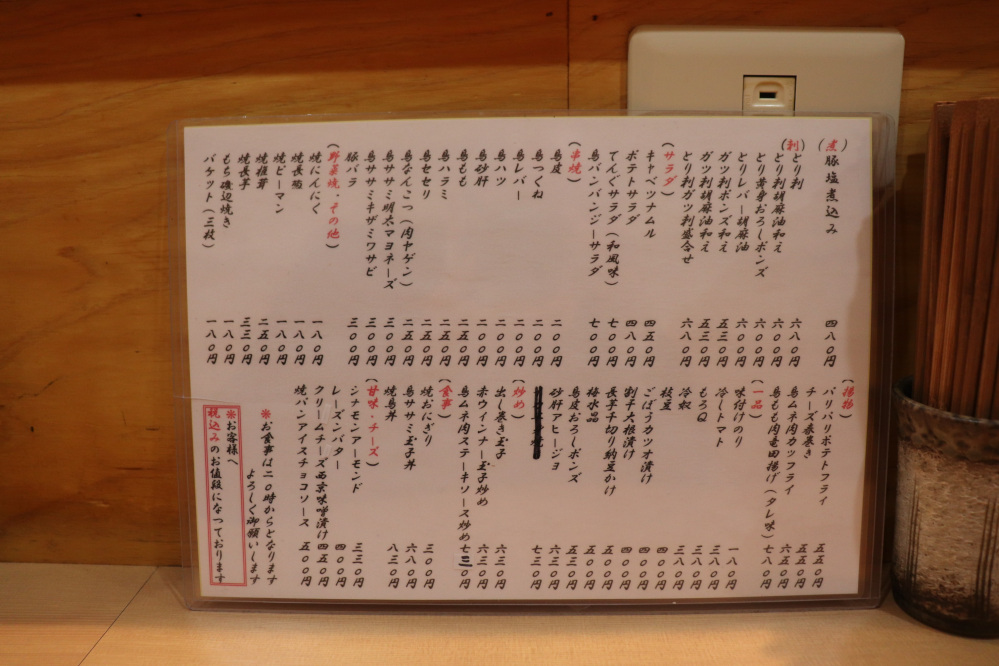 (煮)
豚塩煮込み 四八〇円
(刺)
とり刺 六八〇円
とり刺胡麻油和え 七〇〇円
とり黄身おろしポンズ 七〇〇円
とりレバー胡麻油 六〇〇円
ガツ刺ポンズ和え 五三〇円
ガツ刺胡麻油和え 五三〇円
とり刺ガツ刺盛合せ 六八〇円
(サラダ)
キャベツナムル 四五〇円
ポテトサラダ 四八〇円
てんぐサラダ(和風味) 七〇〇円
鳥バンバンジーサラダ 七〇〇円
(串焼)
鳥皮 二〇〇円
鳥つくね 二〇〇円
鳥レバー 二〇〇円
鳥ハツ 二〇〇円
鳥砂肝 二〇〇円
鳥もも 二五〇円
鳥ハラミ 二五〇円
鳥セセリ 二五〇円
鳥なんこつ(肉ヤゲン) 二五〇円
鳥ササミ明太マヨネーズ 三〇〇円
鳥ササミキザミワサビ 三〇〇円
豚バラ 三〇〇円
(野菜焼・その他)
焼にんにく 一八〇円
焼長葱 一八〇円
焼ピーマン 一八〇円
焼椎茸 二五〇円
焼長芋 三三〇円
もち磯辺焼き 一八〇円
バケット(三枚) 一八〇円
(揚物)
パリパリポテトフライ 五五〇円
チーズ春巻き 五五〇円
鳥ムネ肉カツフライ 六五〇円
鳥もも肉竜田揚げ(タレ味) 七八〇円
(一品)
味付けのり 一八〇円
冷しトマト 三八〇円
もろQ 三八〇円
冷奴 三八〇円
枝豆 四〇〇円
ごぼうカツオ漬け 四〇〇円
割干大根漬け 四〇〇円
長芋千切り納豆かけ 五〇〇円
梅水晶 五〇〇円
鳥皮おろしポンズ 五三〇円
砂肝アヒージョ 六三〇円
七三〇円
(炒め)
出し巻き玉子 六三〇円
赤ウインナー玉子炒め 六三〇円
鳥ムネ肉ステーキソース炒め 七三〇円
(食事)
焼おにぎり 三〇〇円
鳥ササミ玉子丼 六八〇円
焼鳥丼 八三〇円
(甘味・チーズ)
シナモンアーモンド 三三〇円
レーズンバター 四〇〇円
クリームチーズ西京味噌漬け 四五〇円
焼パンアイスチョコソース 五〇〇円
※お食事は二〇時からとなります
よろしく御願いします
※お客様へ
税込みのお値段になっております